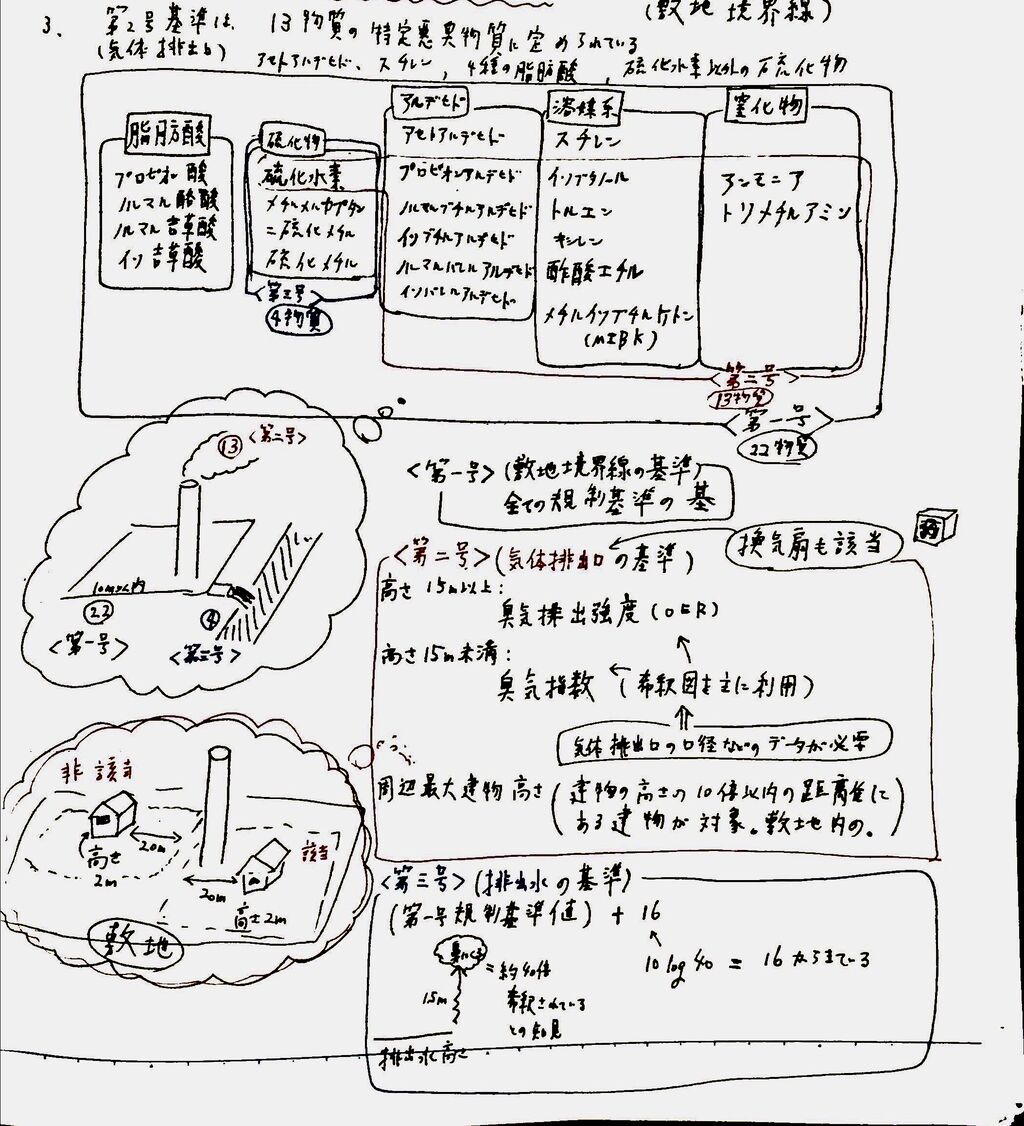 (敷地境界線)
3. 第2号基準は、13物質の特定悪臭物質に定められている
(気体排出口)
アセトアルデヒド、スチレン、4種の脂肪酸、硫化水素以外の硫化物
脂肪酸
プロピオン酸
ノルマル酪酸
ノルマル吉草酸
イソ吉草酸
硫化物
硫化水素
メチルメルカプタン
二硫化メチル
硫化メチル
<第三号>
4物質
アルデヒド
アセトアルデヒド
プロピオンアルデヒド
ノルマルブチルアルデヒド
イソブチルアルデヒド
ノルマルバレルアルデヒド
イソバレルアルデヒド
溶媒系
スチレン
イソブタノール
トルエン
キシレン
酢酸エチル
メチルイソブチルケトン
(MIBK)
窒化物
アンモニア
トリメチルアミン
<第二号>
13物質
<第一号>
22物質
⑬ <第二号>
10m以内
㉒
<第一号>
④
<第三号>
<第一号> (敷地境界線の基準)
全ての規制基準の基
換気扇も該当
<第二号> (気体排出口の基準)
高さ15m以上:
臭気排出強度(OER)
高さ15m未満:
臭気指数 (希釈図を主に利用)
気体排出口の口径などのデータが必要
周辺最大建物高さ (建物の高さの10倍以内の距離に
ある建物が対象。敷地内の。)
非該当
高さ
2m
20m
該当
20m
高さ2m
敷地
<第三号> (排出水の基準)
(第一号規制基準値) + 16
10 log 40 = 16からきている
1.5m
= 約40倍
希釈されている
との知見
排出水高さ